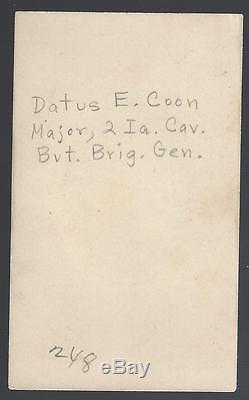 Datus E. Coon
Major, 2 Ia. Cav.
Bvt. Brig. Gen.
248
bay